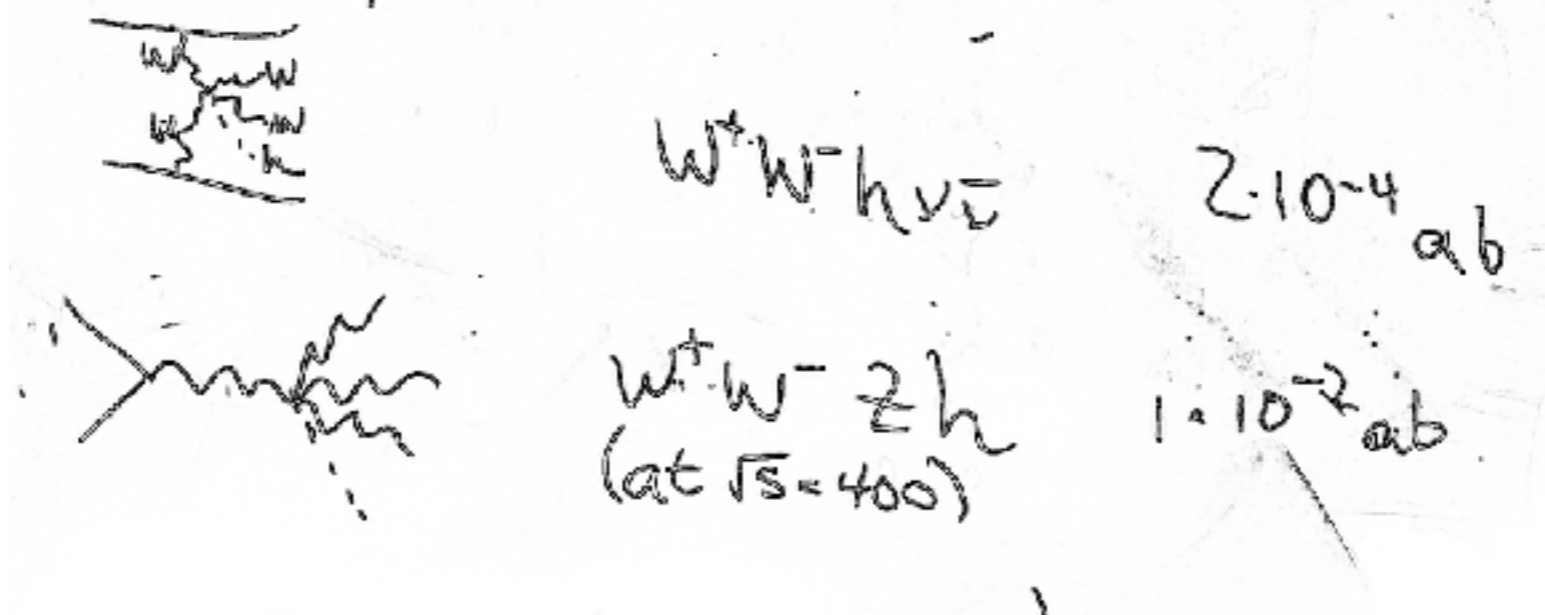 W W
W W
h
W⁺W⁻hνν̄ 2·10⁻⁴ ab
W⁺W⁻Zh 1·10⁻² ab
(at √s=400)